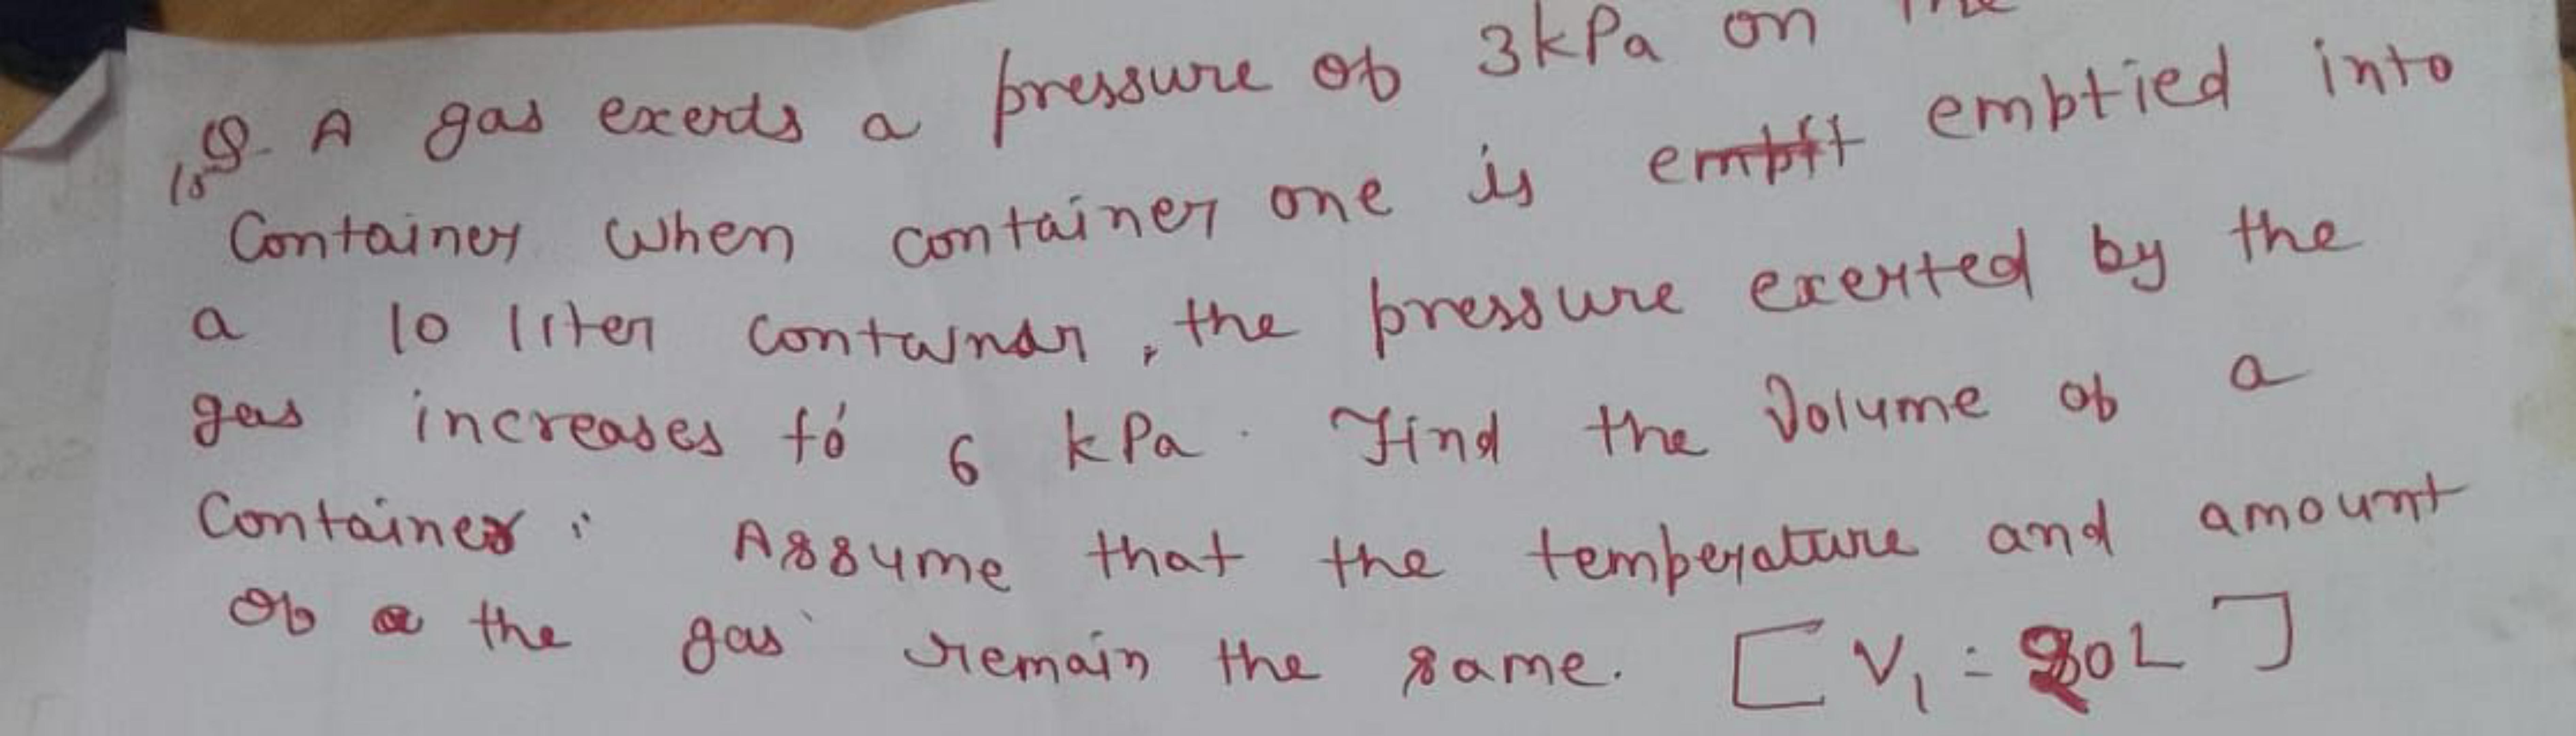 Q. A gas exerts a pressure of 3kPa on the
Container when container one is emptied into
a 10 liter container, the pressure exerted by the
gas increases to 6 kPa. Find the Volume of a
Container. Assume that the temperature and amount
of the gas remain the same. [V₁ = 20L]